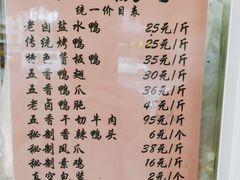 统一价目表
老卤盐水鸭 25元/斤
传统烤鸭 25元/斤
特色酱板鸭 35元/斤
五香鸭翅 30元/斤
五香鸭爪 36元/斤
老卤鸭肫 45元/斤
五香干切牛肉 95元/斤
秘制香辣鸭头 6元/个
秘制凤爪 38元/斤
秘制素鸡 16元/斤
真空包装 2元/个